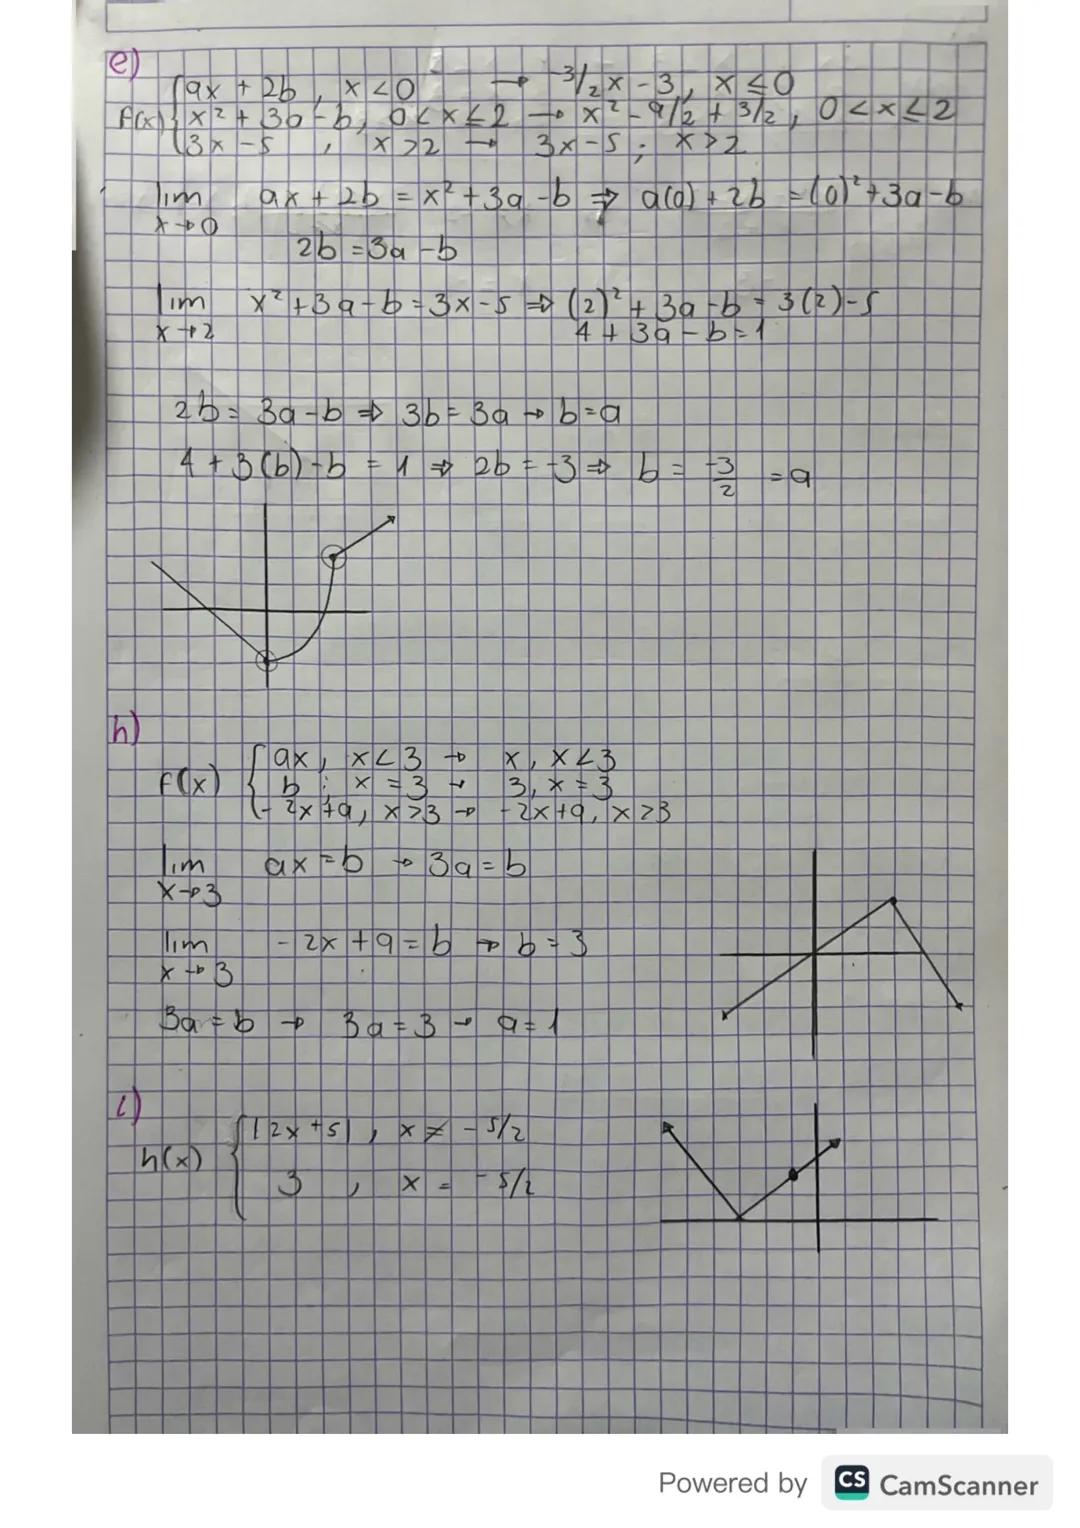 e)
f(x) { ax + 2b , x < 0 → -3/2 x - 3 , x ≤ 0
x² + 3a - b , 0 < x ≤ 2 → x² - 9/2 + 3/2 , 0 < x ≤ 2
3x - 5 , x > 2 → 3x - 5 ; x > 2
lim x→0 ax + 2b = x² + 3a - b ⇒ a(0) + 2b = (0)² + 3a - b
2b = 3a - b
lim x→2 x² + 3a - b = 3x - 5 ⇒ (2)² + 3a - b = 3(2) - 5
4 + 3a - b = 1
2b = 3a - b ⇒ 3b = 3a → b = a
4 + 3(b) - b = 1 ⇒ 2b = -3 ⇒ b = -3/2 = a
h)
f(x) { ax , x < 3 → x , x < 3
b ; x = 3 → 3 , x = 3
- 2x + 9 , x > 3 → - 2x + 9 , x > 3
lim x→3 ax = b → 3a = b
lim x→3 - 2x + 9 = b → b = 3
3a = b → 3a = 3 → a = 1
i)
h(x) { |2x + 5| , x ≠ - 5/2
3 , x = - 5/2
Powered by CS CamScanner